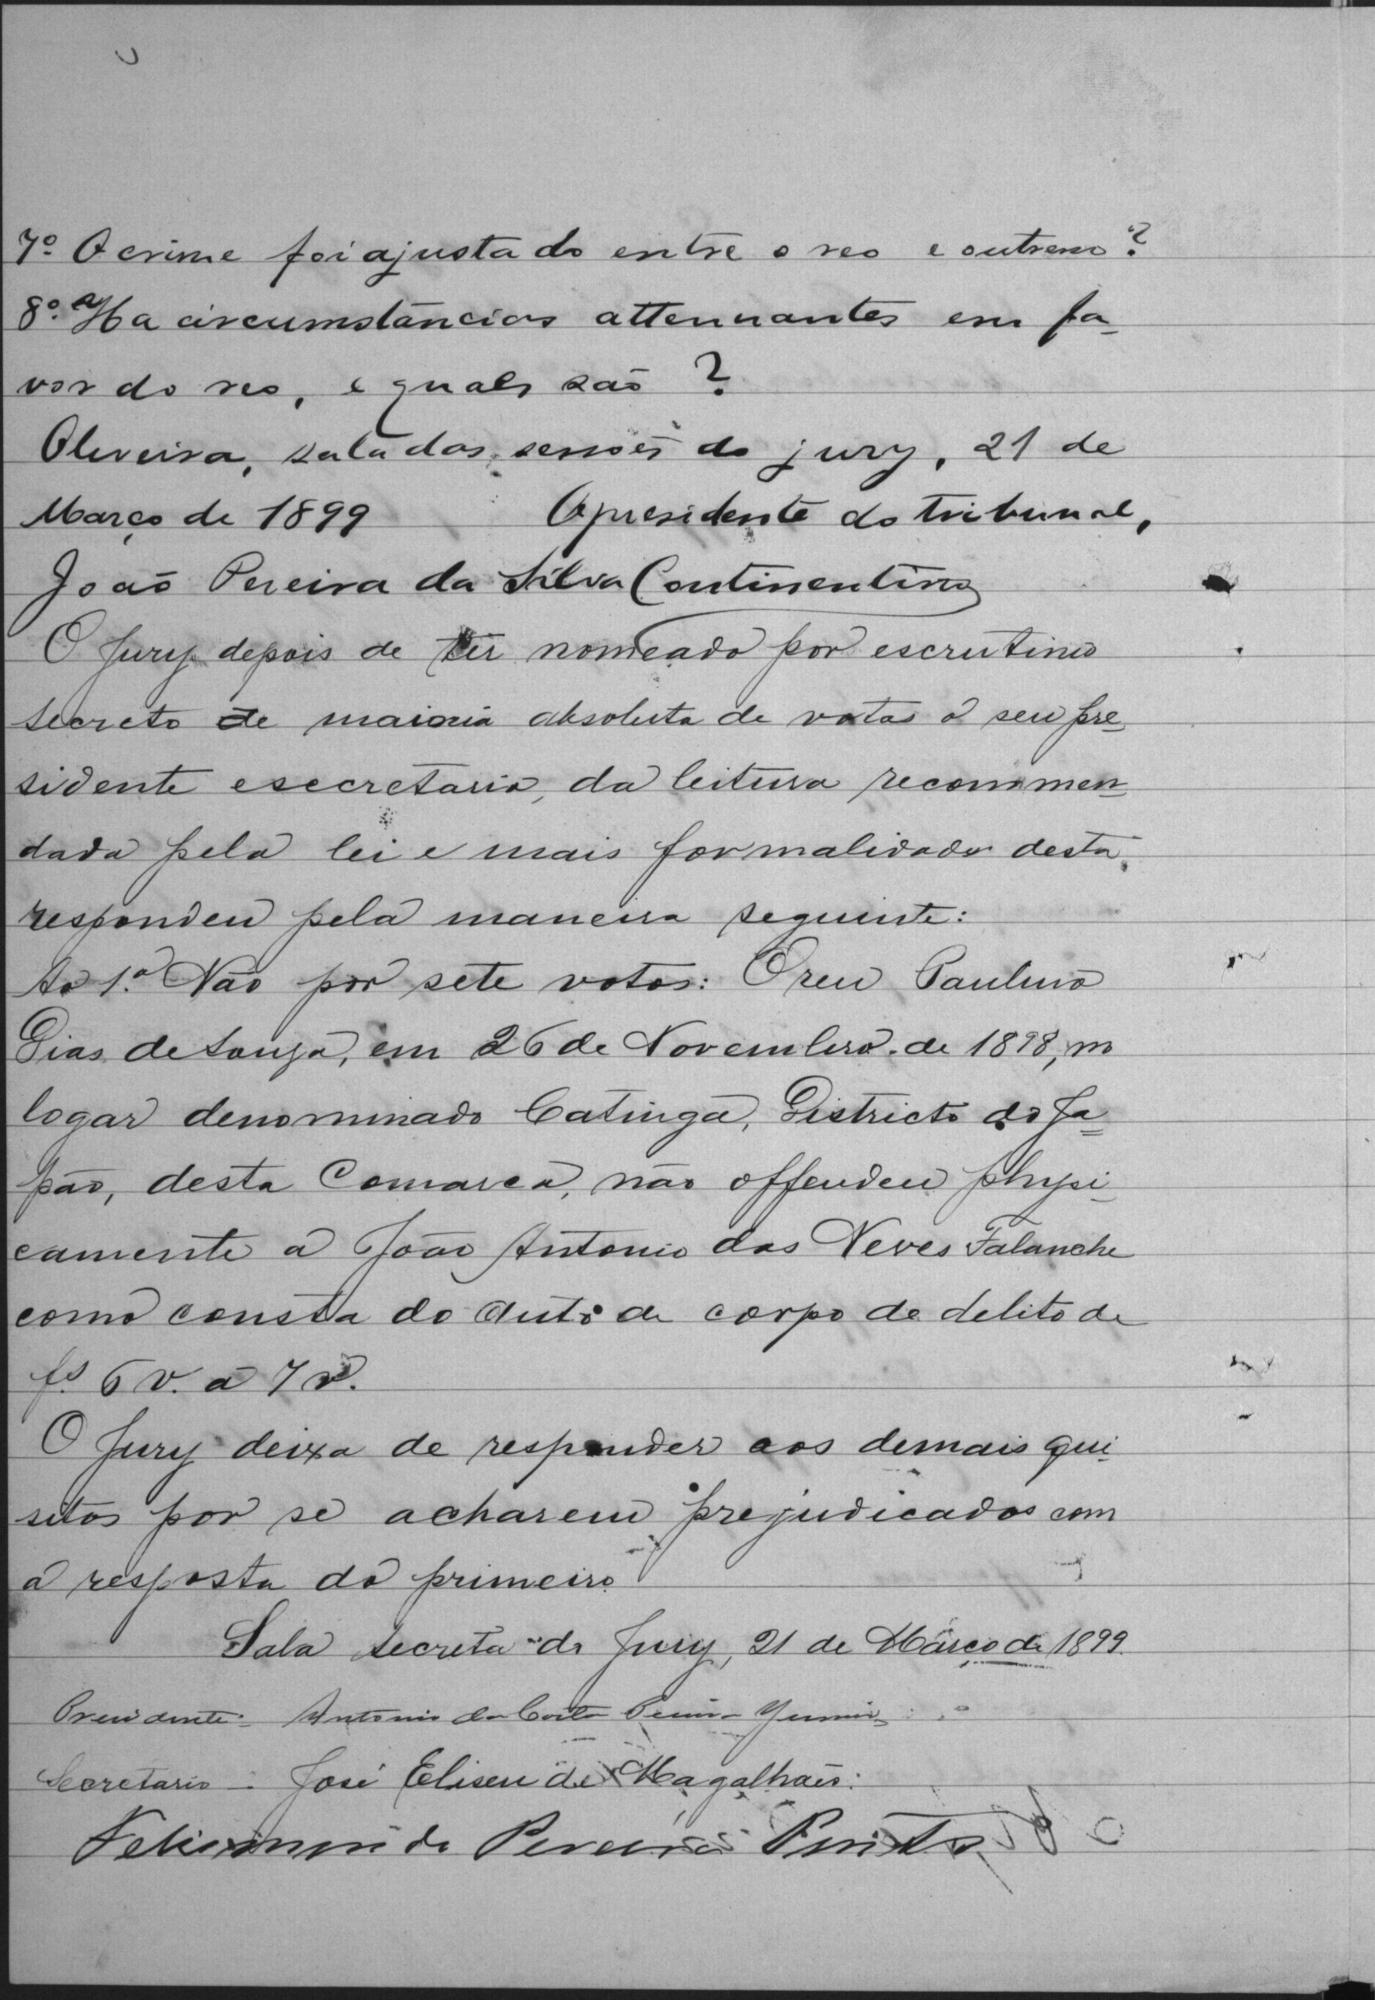 7º O crime foi ajustado entre o reo e outrem?
8º Ha circumstancias attenuantes em fa-
vor do reo, e quaes são?
Oliveira, sala das sessões do jury, 21 de
Março de 1899 O presidente do tribunal,
João Pereira da Silva Continentino
O Jury depois de ter nomeado por escrutinio
secreto de maioria absoluta de votos o seu pre-
sidente e secretario, da leitura recommen-
dada pela lei e mais formalidades desta,
respondeu pela maneira seguinte:
Ao 1º Não por sete votos: O reu Paulino
Dias de Souza, em 26 de Novembro de 1898, no
logar denominado Catinga, Districto do Ja-
pão, desta Comarca, não offendeu physi-
camente a João Antonio das Neves Falanche
como consta do auto de corpo de delito de
fs. 6 v. a 7 v.
O Jury deixa de responder aos demais qui-
sitos por se acharem prejudicados com
a resposta do primeiro
Sala secreta do Jury, 21 de Março de 1899.
Presidente Antonio da Costa Pereira Junior
Secretario - José Eliseu de Magalhães:
Pereira Pinto